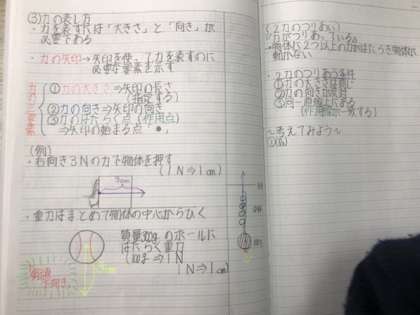 (3)力の表し方
・力を表すには「大きさ」と「向き」が
必要である
・力の矢印→矢印を使って力を表すのに
必要な要素を示す
力の三要素
①力の大きさ⇒矢印の長さ
(指定する)
②力の向き⇒矢印の向き
③力のはたらく点(作用点)
⇒矢印の始まる点「●」
(例)
・右向き3Nの力で物体を押す
(1N⇒1cm)
3cm
・重力はまとめて物体の中心からひく
質量300gのボールに
はたらく重力
(100g⇒1N
1N⇒1cm)
3cm
下向き
(4)2力のつりあい
・力がつりあっている
→物体に2つ以上の力がはたらき物体が
動かない
・2力のつりあう条件
①力の大きさは同じ
②力の向きは反対
③同一直線上にある
(作用線が一致する)
~考えてみよう~